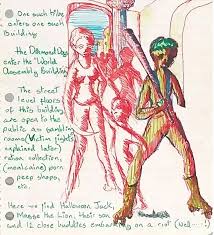 One such tribe
enters one such
Building.
the Diamond Dogs
enter the World
Assembly Building
The street
level floors
of this building
are open to the
public as gambling
rooms (Victim fights
explained later)
ration collection,
(mealcaine) porn
peep shops,
etc.
Here we find Halloween Jack,
Magge the Lion, their son
and 12 close buddies embarking on a riot (Well---!)